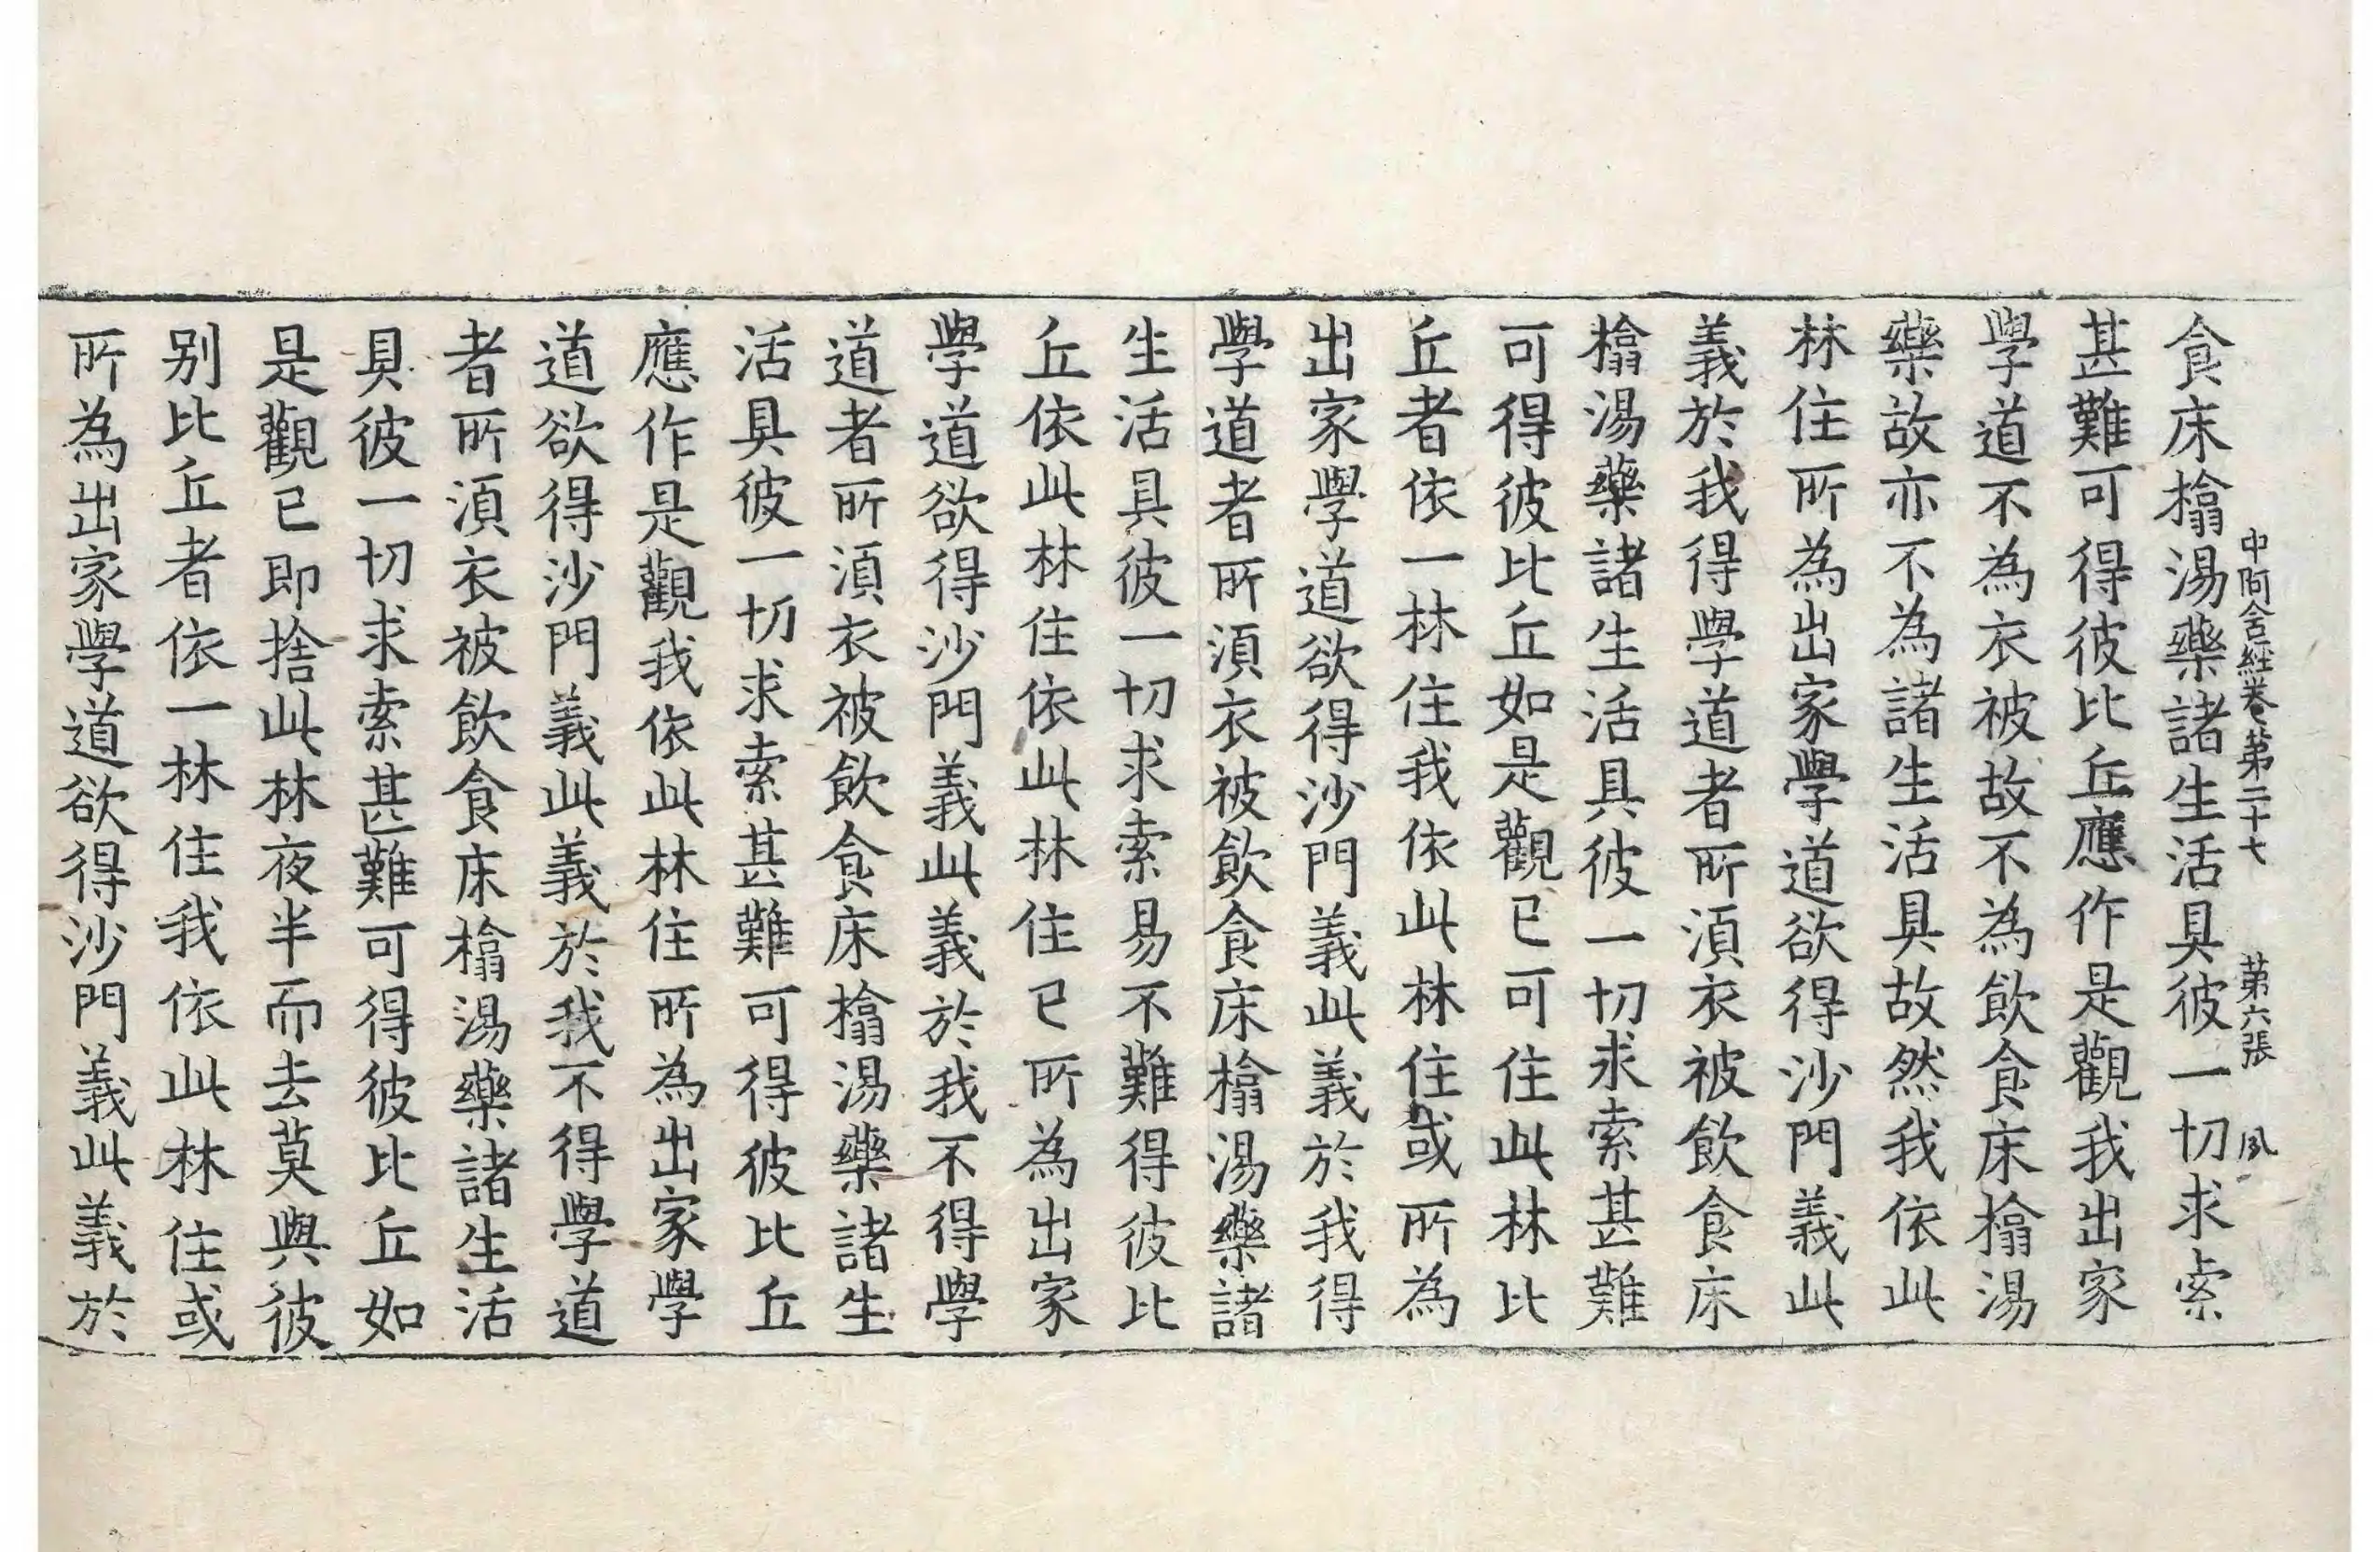 中阿含經卷第二十七　第六張　夙
食床榻湯藥諸生活具彼一切求索
甚難可得彼比丘應作是觀我出家
學道不為衣被故不為飲食床榻湯
藥故亦不為諸生活具故然我依此
林住所為出家學道欲得沙門義此
義於我得學道者所湏衣被飲食床
榻湯藥諸生活具彼一切求索甚難
可得彼比丘如是觀已可住此林比
丘者依一林住我依此林住或所為
出家學道欲得沙門義此義於我得
學道者所湏衣被飲食床榻湯藥諸
生活具彼一切求索易不難得彼比
丘依此林住依此林住已所為出家
學道欲得沙門義此義於我不得學
道者所湏衣被飲食床榻湯藥諸生
活具彼一切求索甚難可得彼比丘
應作是觀我依此林住所為出家學
道欲得沙門義此義於我不得學道
者所湏衣被飲食床榻湯藥諸生活
具彼一切求索甚難可得彼比丘如
是觀已即捨此林夜半而去莫與彼
別比丘者依一林住我依此林住或
所為出家學道欲得沙門義此義於